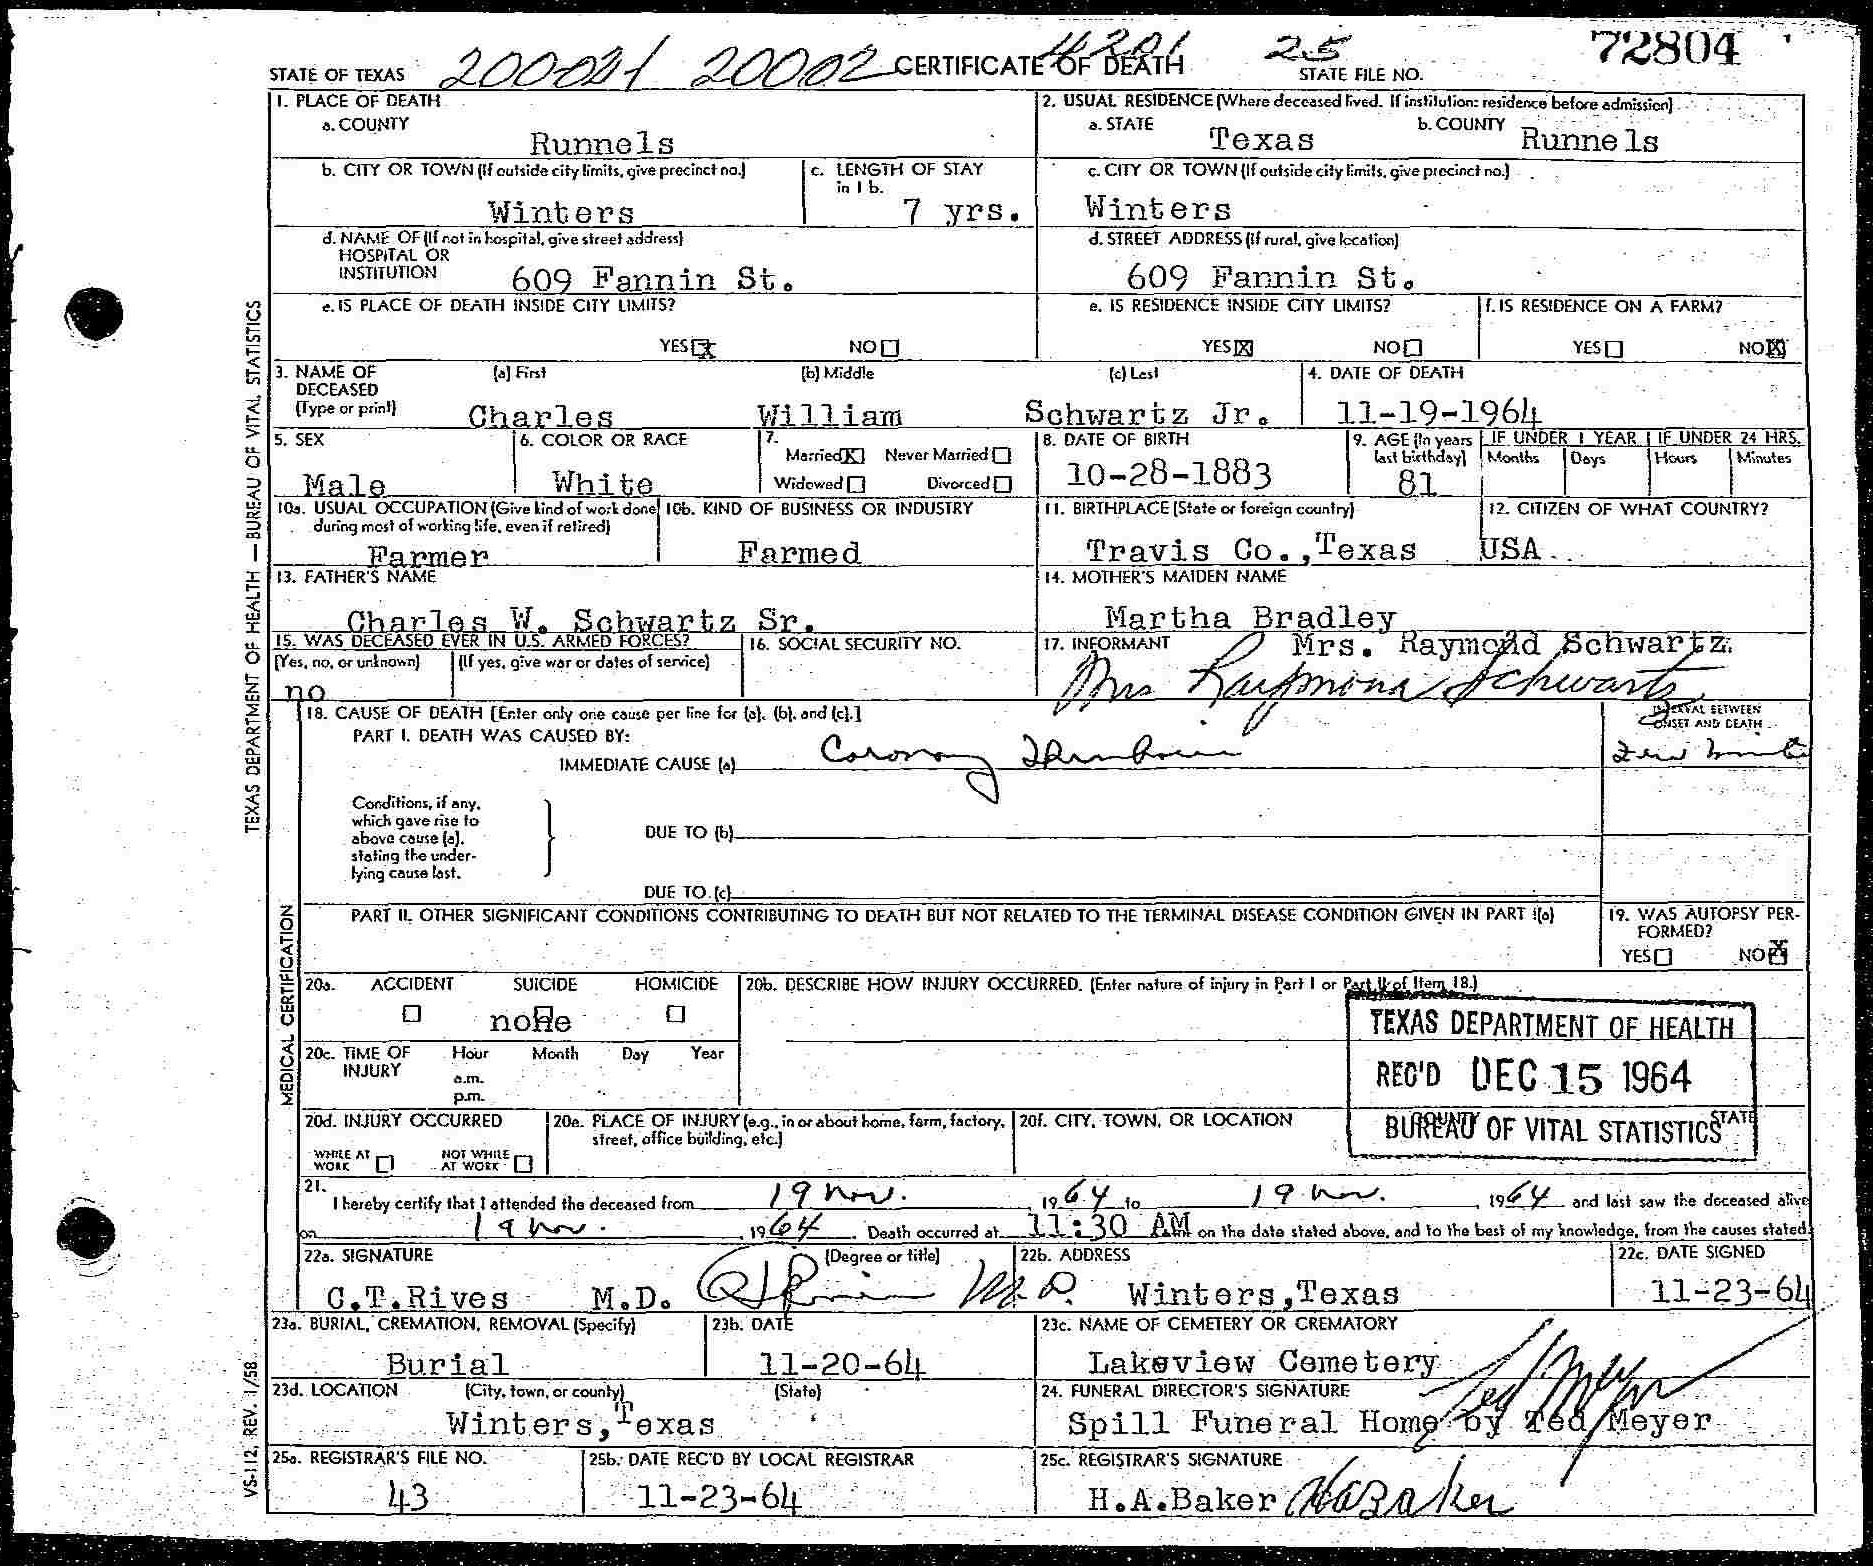 72804
STATE OF TEXAS CERTIFICATE OF DEATH 25 STATE FILE NO.
1. PLACE OF DEATH 2. USUAL RESIDENCE (Where deceased lived. If institution: residence before admission)
a. COUNTY Runnels a. STATE Texas b. COUNTY Runnels
b. CITY OR TOWN (If outside city limits, give precinct no.) c. LENGTH OF STAY in 1 b. c. CITY OR TOWN (If outside city limits, give precinct no.)
Winters 7 yrs. Winters
d. NAME OF (If not in hospital, give street address) HOSPITAL OR INSTITUTION d. STREET ADDRESS (If rural, give location)
609 Fannin St. 609 Fannin St.
e. IS PLACE OF DEATH INSIDE CITY LIMITS? e. IS RESIDENCE INSIDE CITY LIMITS? f. IS RESIDENCE ON A FARM?
YES X NO YES X NO YES NO X
3. NAME OF DECEASED (Type or print) (a) First (b) Middle (c) Last 4. DATE OF DEATH
Charles William Schwartz Jr. 11-19-1964
5. SEX 6. COLOR OR RACE 7. Married X Never Married 8. DATE OF BIRTH 9. AGE (In years last birthday) IF UNDER 1 YEAR IF UNDER 24 HRS.
Months Days Hours Minutes
Male White Widowed Divorced 10-28-1883 81
10a. USUAL OCCUPATION (Give kind of work done during most of working life, even if retired) 10b. KIND OF BUSINESS OR INDUSTRY 11. BIRTHPLACE (State or foreign country) 12. CITIZEN OF WHAT COUNTRY?
Farmer Farmed Travis Co.,Texas USA
13. FATHER'S NAME 14. MOTHER'S MAIDEN NAME
Charles W. Schwartz Sr. Martha Bradley
15. WAS DECEASED EVER IN U.S. ARMED FORCES? 16. SOCIAL SECURITY NO. 17. INFORMANT Mrs. Raymond Schwartz
(Yes, no, or unknown) (If yes, give war or dates of service)
no Mrs Raymond Schwartz
18. CAUSE OF DEATH [Enter only one cause per line for (a), (b), and (c).] INTERVAL BETWEEN ONSET AND DEATH
PART I. DEATH WAS CAUSED BY:
IMMEDIATE CAUSE (a) Coronary
Conditions, if any, which gave rise to above cause (a), stating the underlying cause last.
DUE TO (b)
DUE TO (c)
PART II. OTHER SIGNIFICANT CONDITIONS CONTRIBUTING TO DEATH BUT NOT RELATED TO THE TERMINAL DISEASE CONDITION GIVEN IN PART I(a) 19. WAS AUTOPSY PERFORMED?
YES NO X
20a. ACCIDENT SUICIDE HOMICIDE 20b. DESCRIBE HOW INJURY OCCURRED. (Enter nature of injury in Part I or Part II of Item 18.)
none
20c. TIME OF INJURY Hour Month Day Year
a.m.
p.m.
TEXAS DEPARTMENT OF HEALTH
REC'D DEC 15 1964
BUREAU OF VITAL STATISTICS
20d. INJURY OCCURRED 20e. PLACE OF INJURY (e.g., in or about home, farm, factory, street, office building, etc.) 20f. CITY, TOWN, OR LOCATION COUNTY STATE
WHILE AT WORK NOT WHILE AT WORK
21. I hereby certify that I attended the deceased from 19 Nov. , 1964 to 19 Nov. , 1964 and last saw the deceased alive
on 19 Nov. , 1964 . Death occurred at 11:30 AM on the date stated above, and to the best of my knowledge, from the causes stated.
22a. SIGNATURE (Degree or title) 22b. ADDRESS 22c. DATE SIGNED
C.T.Rives M.D. M.D. Winters,Texas 11-23-64
23a. BURIAL, CREMATION, REMOVAL (Specify) 23b. DATE 23c. NAME OF CEMETERY OR CREMATORY
Burial 11-20-64 Lakeview Cemetery
23d. LOCATION (City, town, or county) (State) 24. FUNERAL DIRECTOR'S SIGNATURE Ted Meyer
Winters,Texas Spill Funeral Home by Ted Meyer
25a. REGISTRAR'S FILE NO. 25b. DATE REC'D BY LOCAL REGISTRAR 25c. REGISTRAR'S SIGNATURE
43 11-23-64 H.A.Baker HABaker
TEXAS DEPARTMENT OF HEALTH — BUREAU OF VITAL STATISTICS
MEDICAL CERTIFICATION
VS-112, REV. 1/58